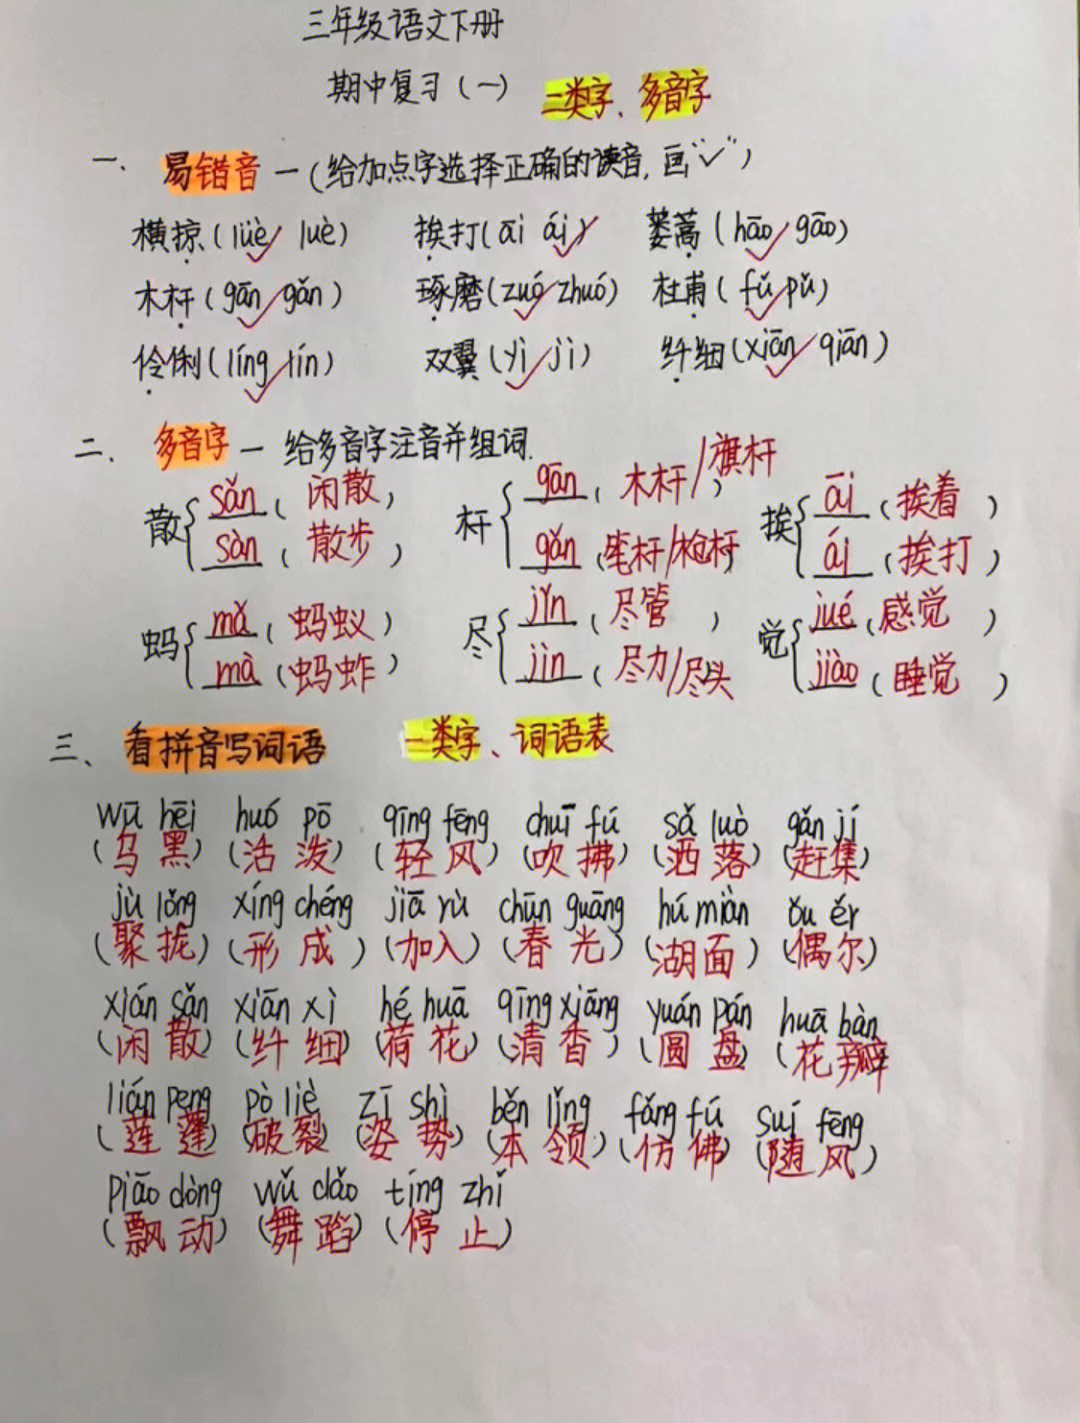 三年级语文下册
期中复习(一) 二类字、多音字
一、易错音—(给加点字选择正确的读音,画"✓")
横掠(lüè✓ luè) 挨打(āi ái✓) 蒌蒿(hāo✓ gāo)
木杆(gān✓ gǎn) 琢磨(zuó✓ zhuó) 杜甫(fǔ✓ pǔ)
伶俐(líng✓ lín) 双翼(yì✓ jì) 纤细(xiān✓ qiān)
二、多音字—给多音字注音并组词.
散{sǎn(闲散) 杆{gān(木杆/旗杆) 挨{āi(挨着)
sàn(散步) gǎn(笔杆/枪杆) ái(挨打)
蚂{mǎ(蚂蚁) 尽{jǐn(尽管) 觉{jué(感觉)
mà(蚂蚱) jìn(尽力/尽头) jiào(睡觉)
三、看拼音写词语 一类字、词语表
wū hēi huó pō qīng fēng chuī fú sǎ luò gǎn jí
(乌黑) (活泼) (轻风) (吹拂) (洒落) (赶集)
jù lǒng xíng chéng jiā rù chūn guāng hú miàn ǒu ěr
(聚拢) (形成) (加入) (春光) (湖面) (偶尔)
xián sǎn xiān xì hé huā qīng xiāng yuán pán huā bàn
(闲散) (纤细) (荷花) (清香) (圆盘) (花瓣
lián peng pò liè zī shì běn lǐng fǎng fú suí fēng
(莲蓬) (破裂) (姿势) (本领) (仿佛) (随风)
piāo dòng wǔ dǎo tíng zhǐ
(飘动) (舞蹈) (停止)